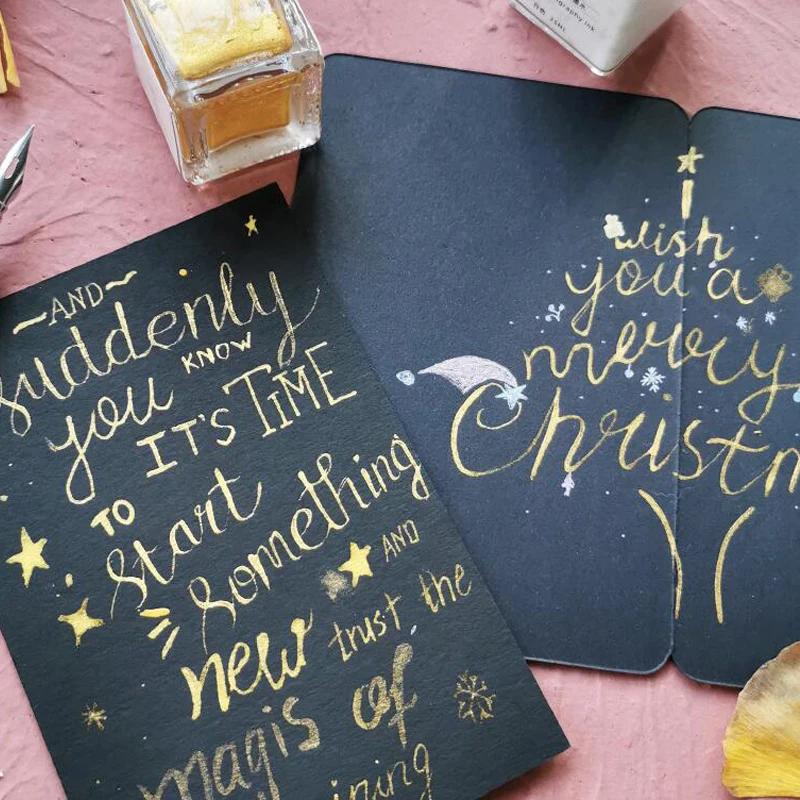 AND
suddenly
you KNOW
IT'S TIME
TO start
something
new AND
trust the
magis of
I
wish
you a
merry
Christm